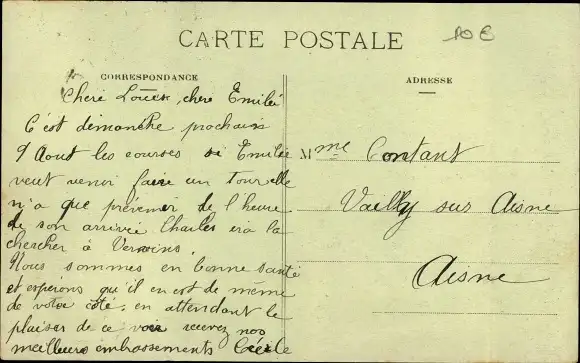 10 €
CARTE POSTALE
CORRESPONDANCE
Chere Louise, chere Emilie
C'est dimanche prochain
9 Aout les courses si Emilie
veut venir faire un tour elle
n'a que prévenir de l'heure
de son arrivée Charles ira la
chercher à Vervins.
Nous sommes en bonne santé
et espérons qu'il en est de même
de votre côté, en attendant le
plaisir de ce voir recevez nos
meilleurs embrassements Cécile
ADRESSE
Mme Contant
Vailly sur Aisne
Aisne